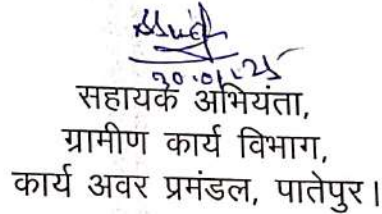 20.01.25
सहायक अभियंता,
ग्रामीण कार्य विभाग,
कार्य अवर प्रमंडल, पातेपुर।